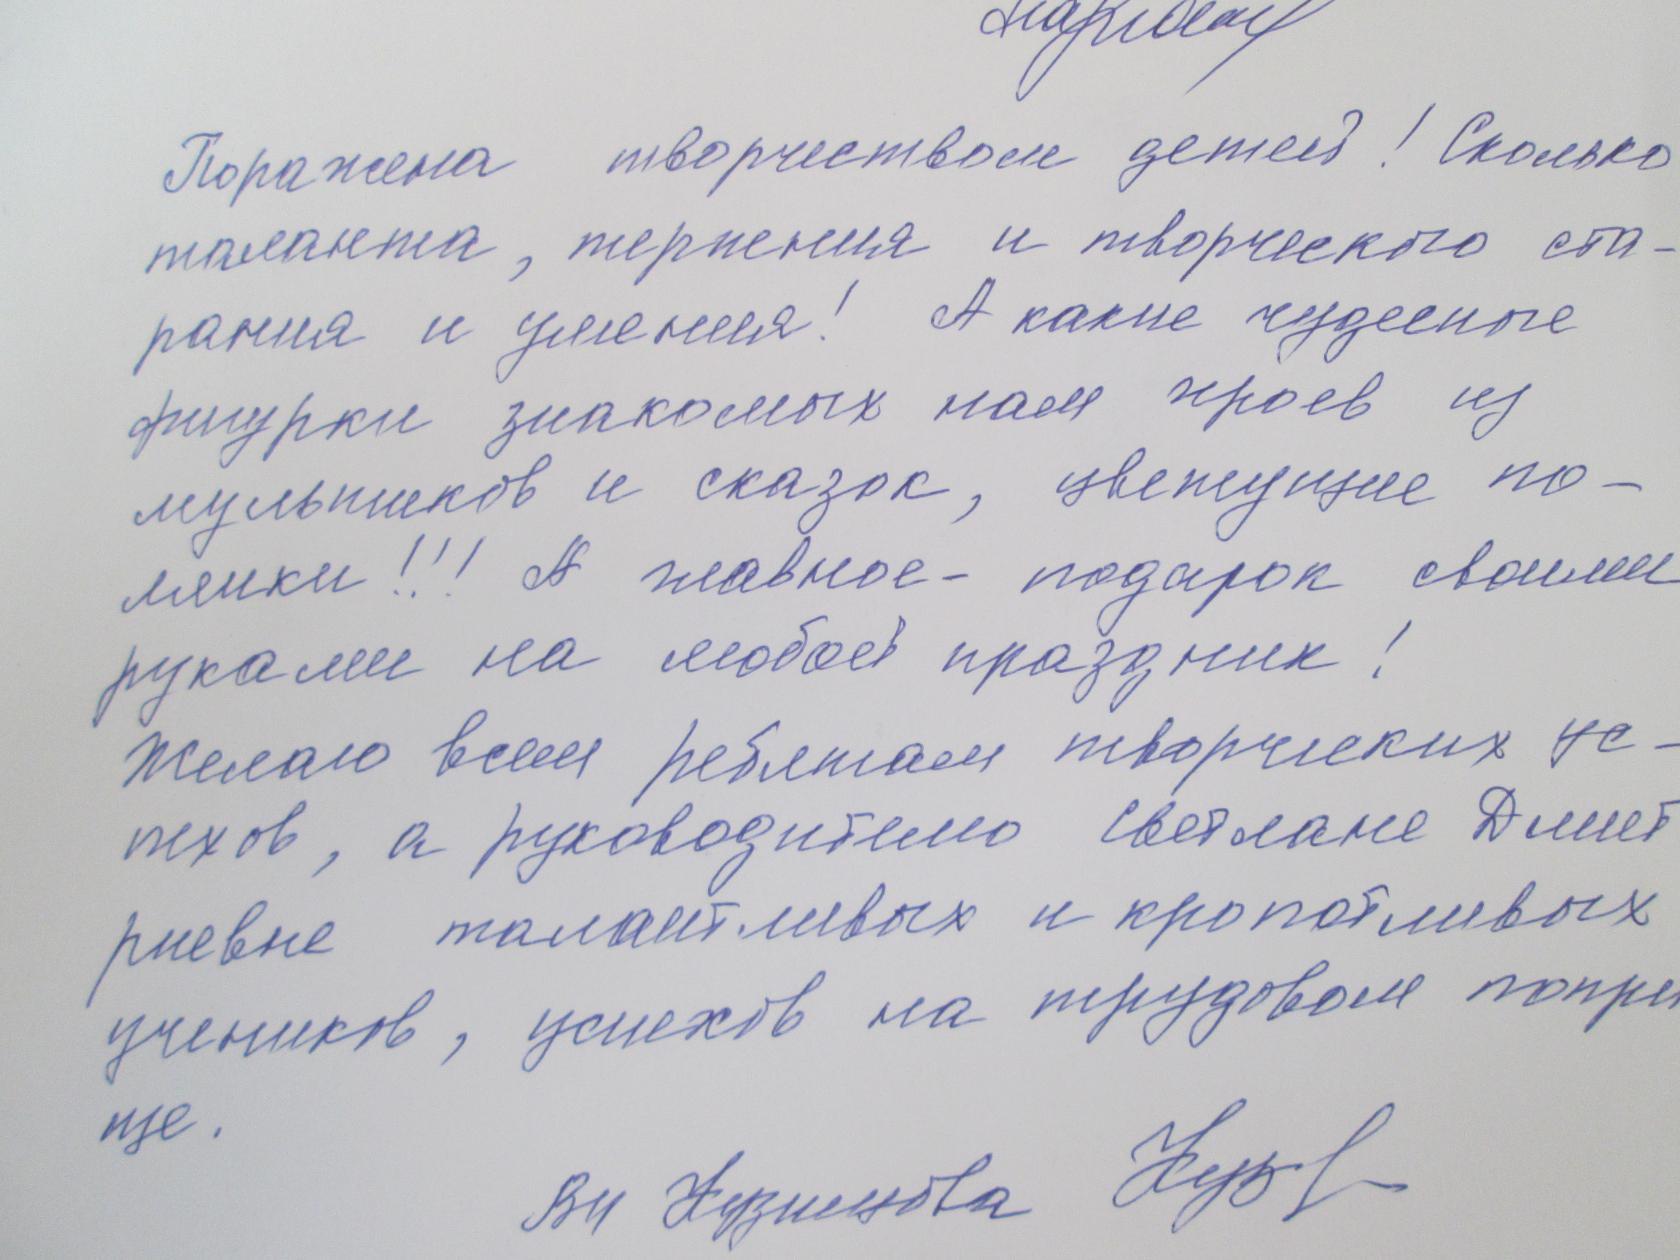 Поражена творчеством детей! Сколько
таланта, терпения и творческого ста-
рания и умения! А какие чудесные
фигурки знакомых нам героев из
мультиков и сказок, цветущие по-
лянки!!! А главное - подарок своими
руками на любой праздник!
Желаю всем ребятам творческих ус-
пехов, а руководителю Светлане Дмит
риевне талантливых и кропотливых
учеников, успехов на трудовом попри
ще.
ВИ Кузнецова